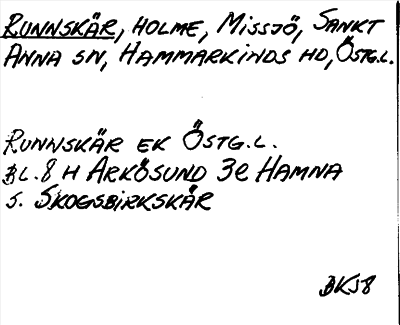 RUNNSKÄR, HOLME, MISSJÖ, SANKT
ANNA SN, HAMMARKINDS HD, ÖSTG.L.
RUNNSKÄR EK ÖSTG.L.
BL. 8 H ARKÖSUND 3e HAMNA
S. SKOGSBIRKSKÄR
BK58